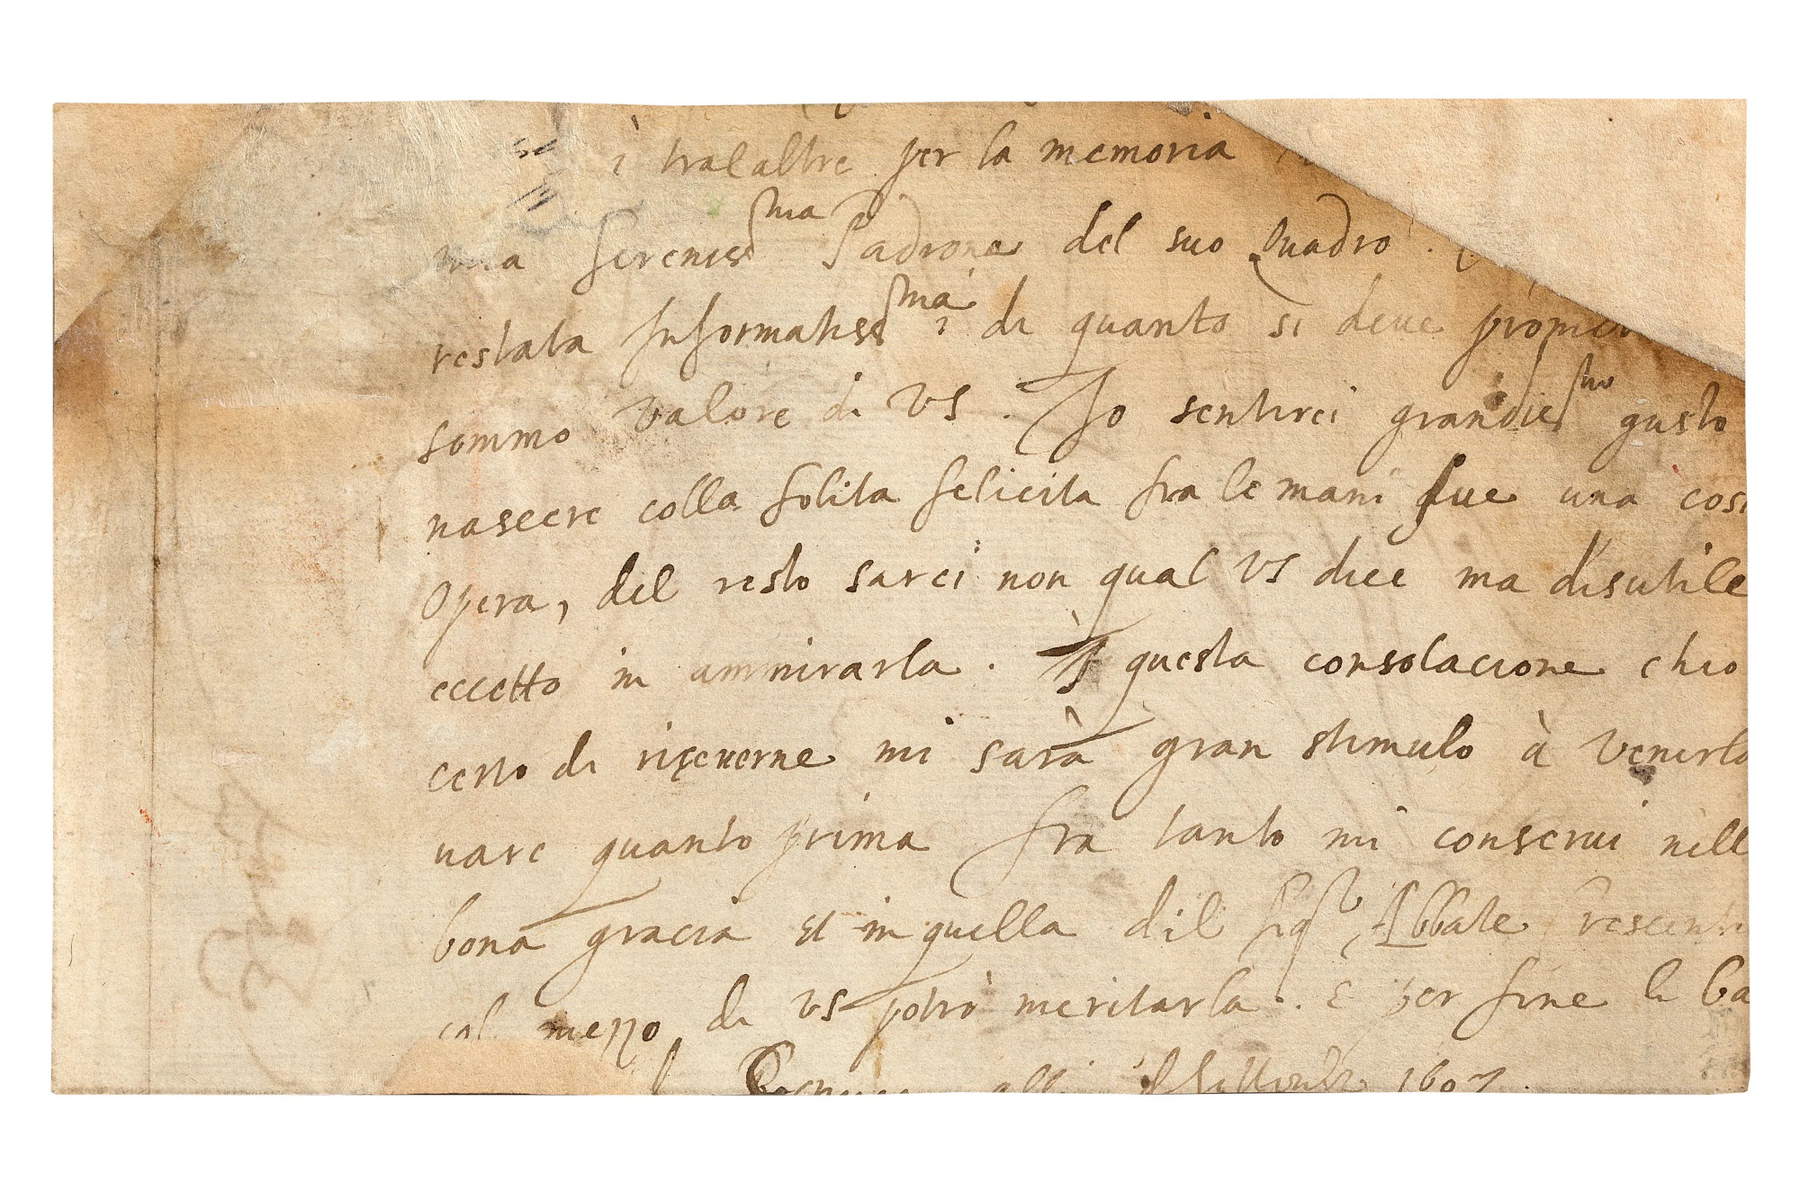 tralaltre per la memoria
mia Sereniss.ma Padrona del suo Quadro.
restata Informatiss.ma di quanto si deue
sommo valore di VS. Io sentirei grandiss.mo gusto
nascere colla solita felicita fra le mani sue una cosi
Opera, del resto sarei non qual VS dice ma disutile
eccetto in ammirarla. È questa consolacione chio
certo di riceuerne mi sarà gran stimulo à venirla
uare quanto prima fra tanto mi conserui nell
bona gracia et in quella dil Sig.r Abbate
col mezzo di VS potrò meritarla. E per fine li ba
alli Settembre 1607.